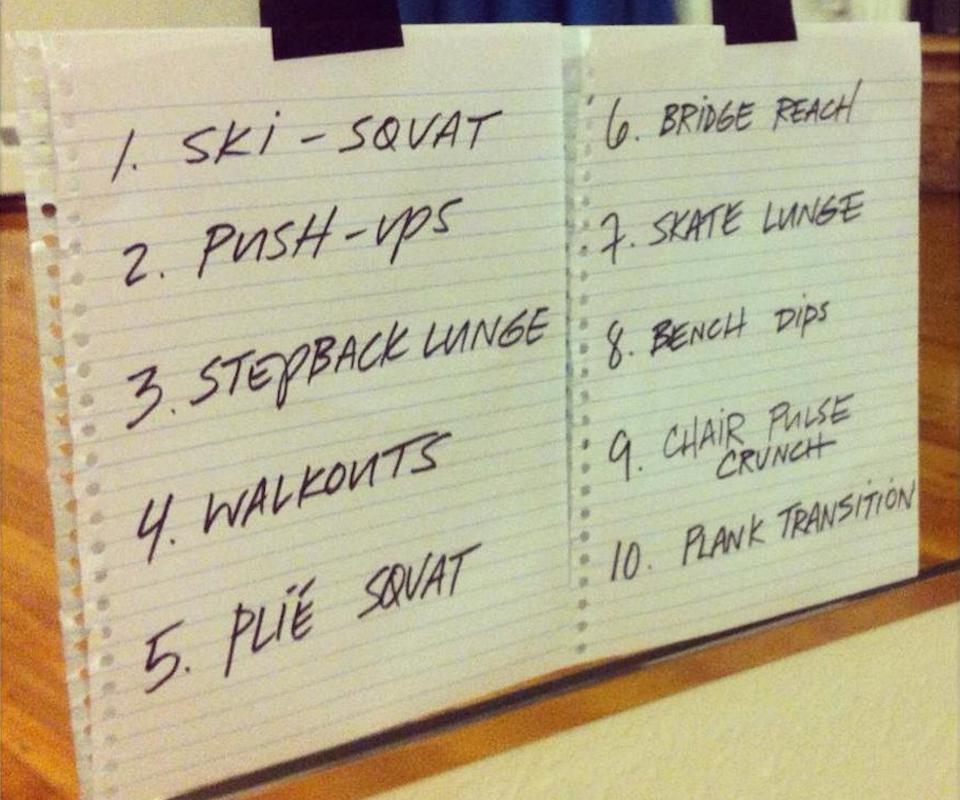 1. SKi - SQUAT
2. PUSH-UPS
3. STEPBACK LUNGE
4. WALKOUTS
5. PLIË SQUAT
6. BRIDGE REACH
7. SKATE LUNGE
8. BENCH DIPS
9. CHAIR PULSE
CRUNCH
10. PLANK TRANSITION